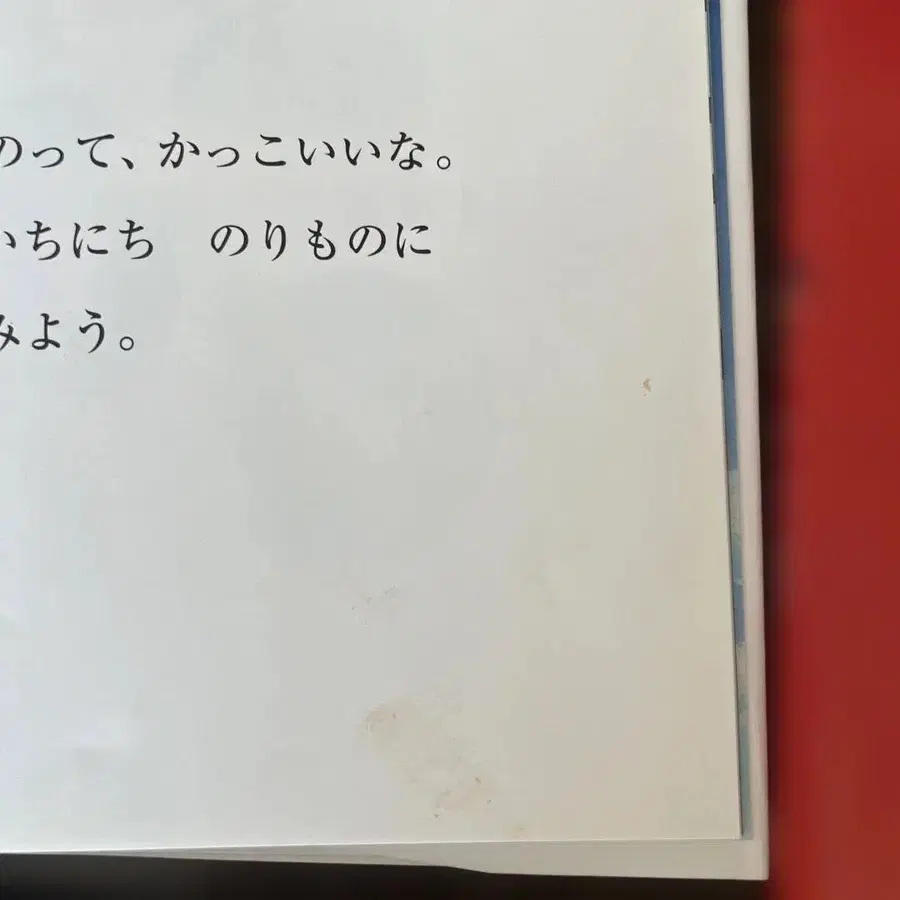 のって、かっこいいな。
いちにち　のりものに
みよう。